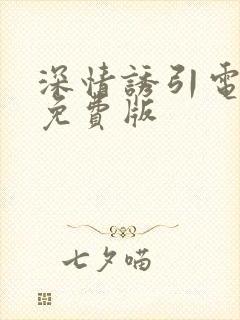 深情誘引電
免費版
七夕喵